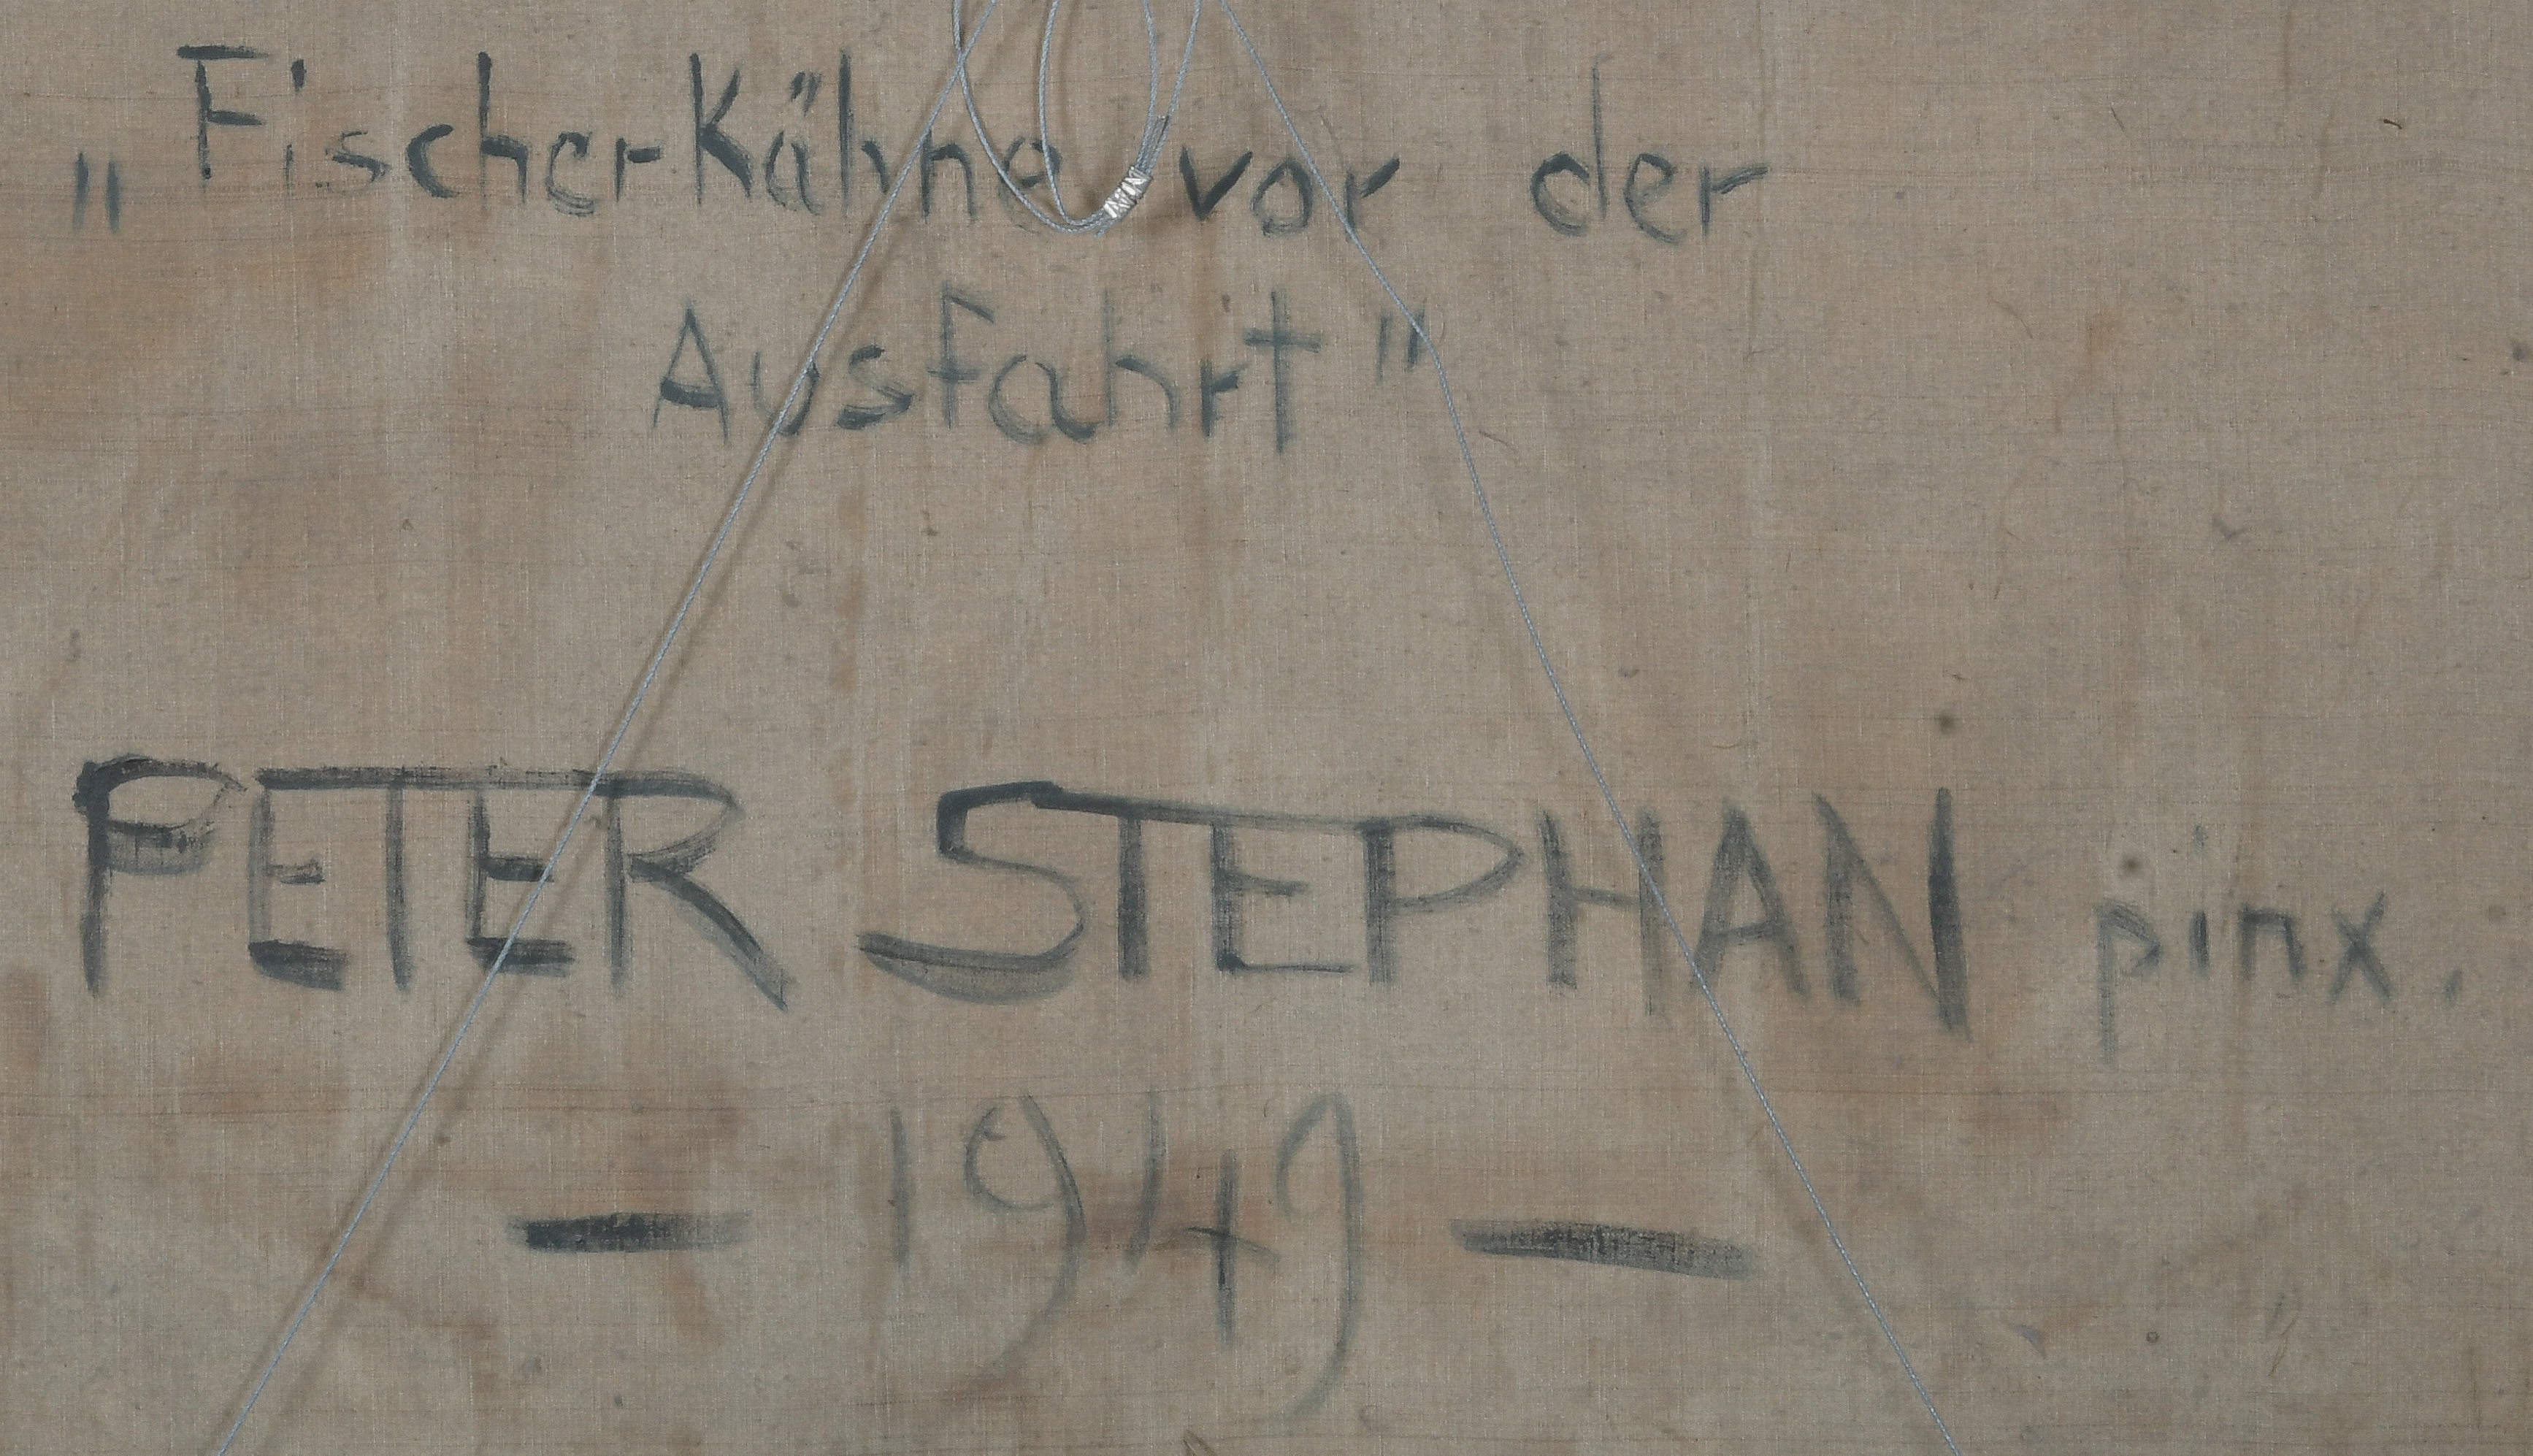 „Fischerkähne vor der
Ausfahrt"
PETER STEPHAN pinx.
— 1949 —